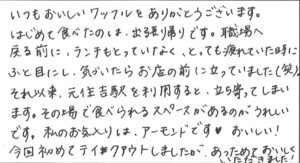 いつもおいしいワッフルをありがとうございます。
はじめて食べたのは、出張帰りです。職場へ
戻る前に、ランチもとっていなく、とっても疲れていた時に
ふと目にし、気づいたらお店の前に立っていました(笑)。
それ以来、元住吉駅を利用すると、立ち寄ってしまい
ます。その場で食べられるスペースがあるのがうれしい
です。私のお気入りは、アーモンドです♥ おいしい!
今回初めてテイクアウトしましたが、あっためておいしく
いただきました